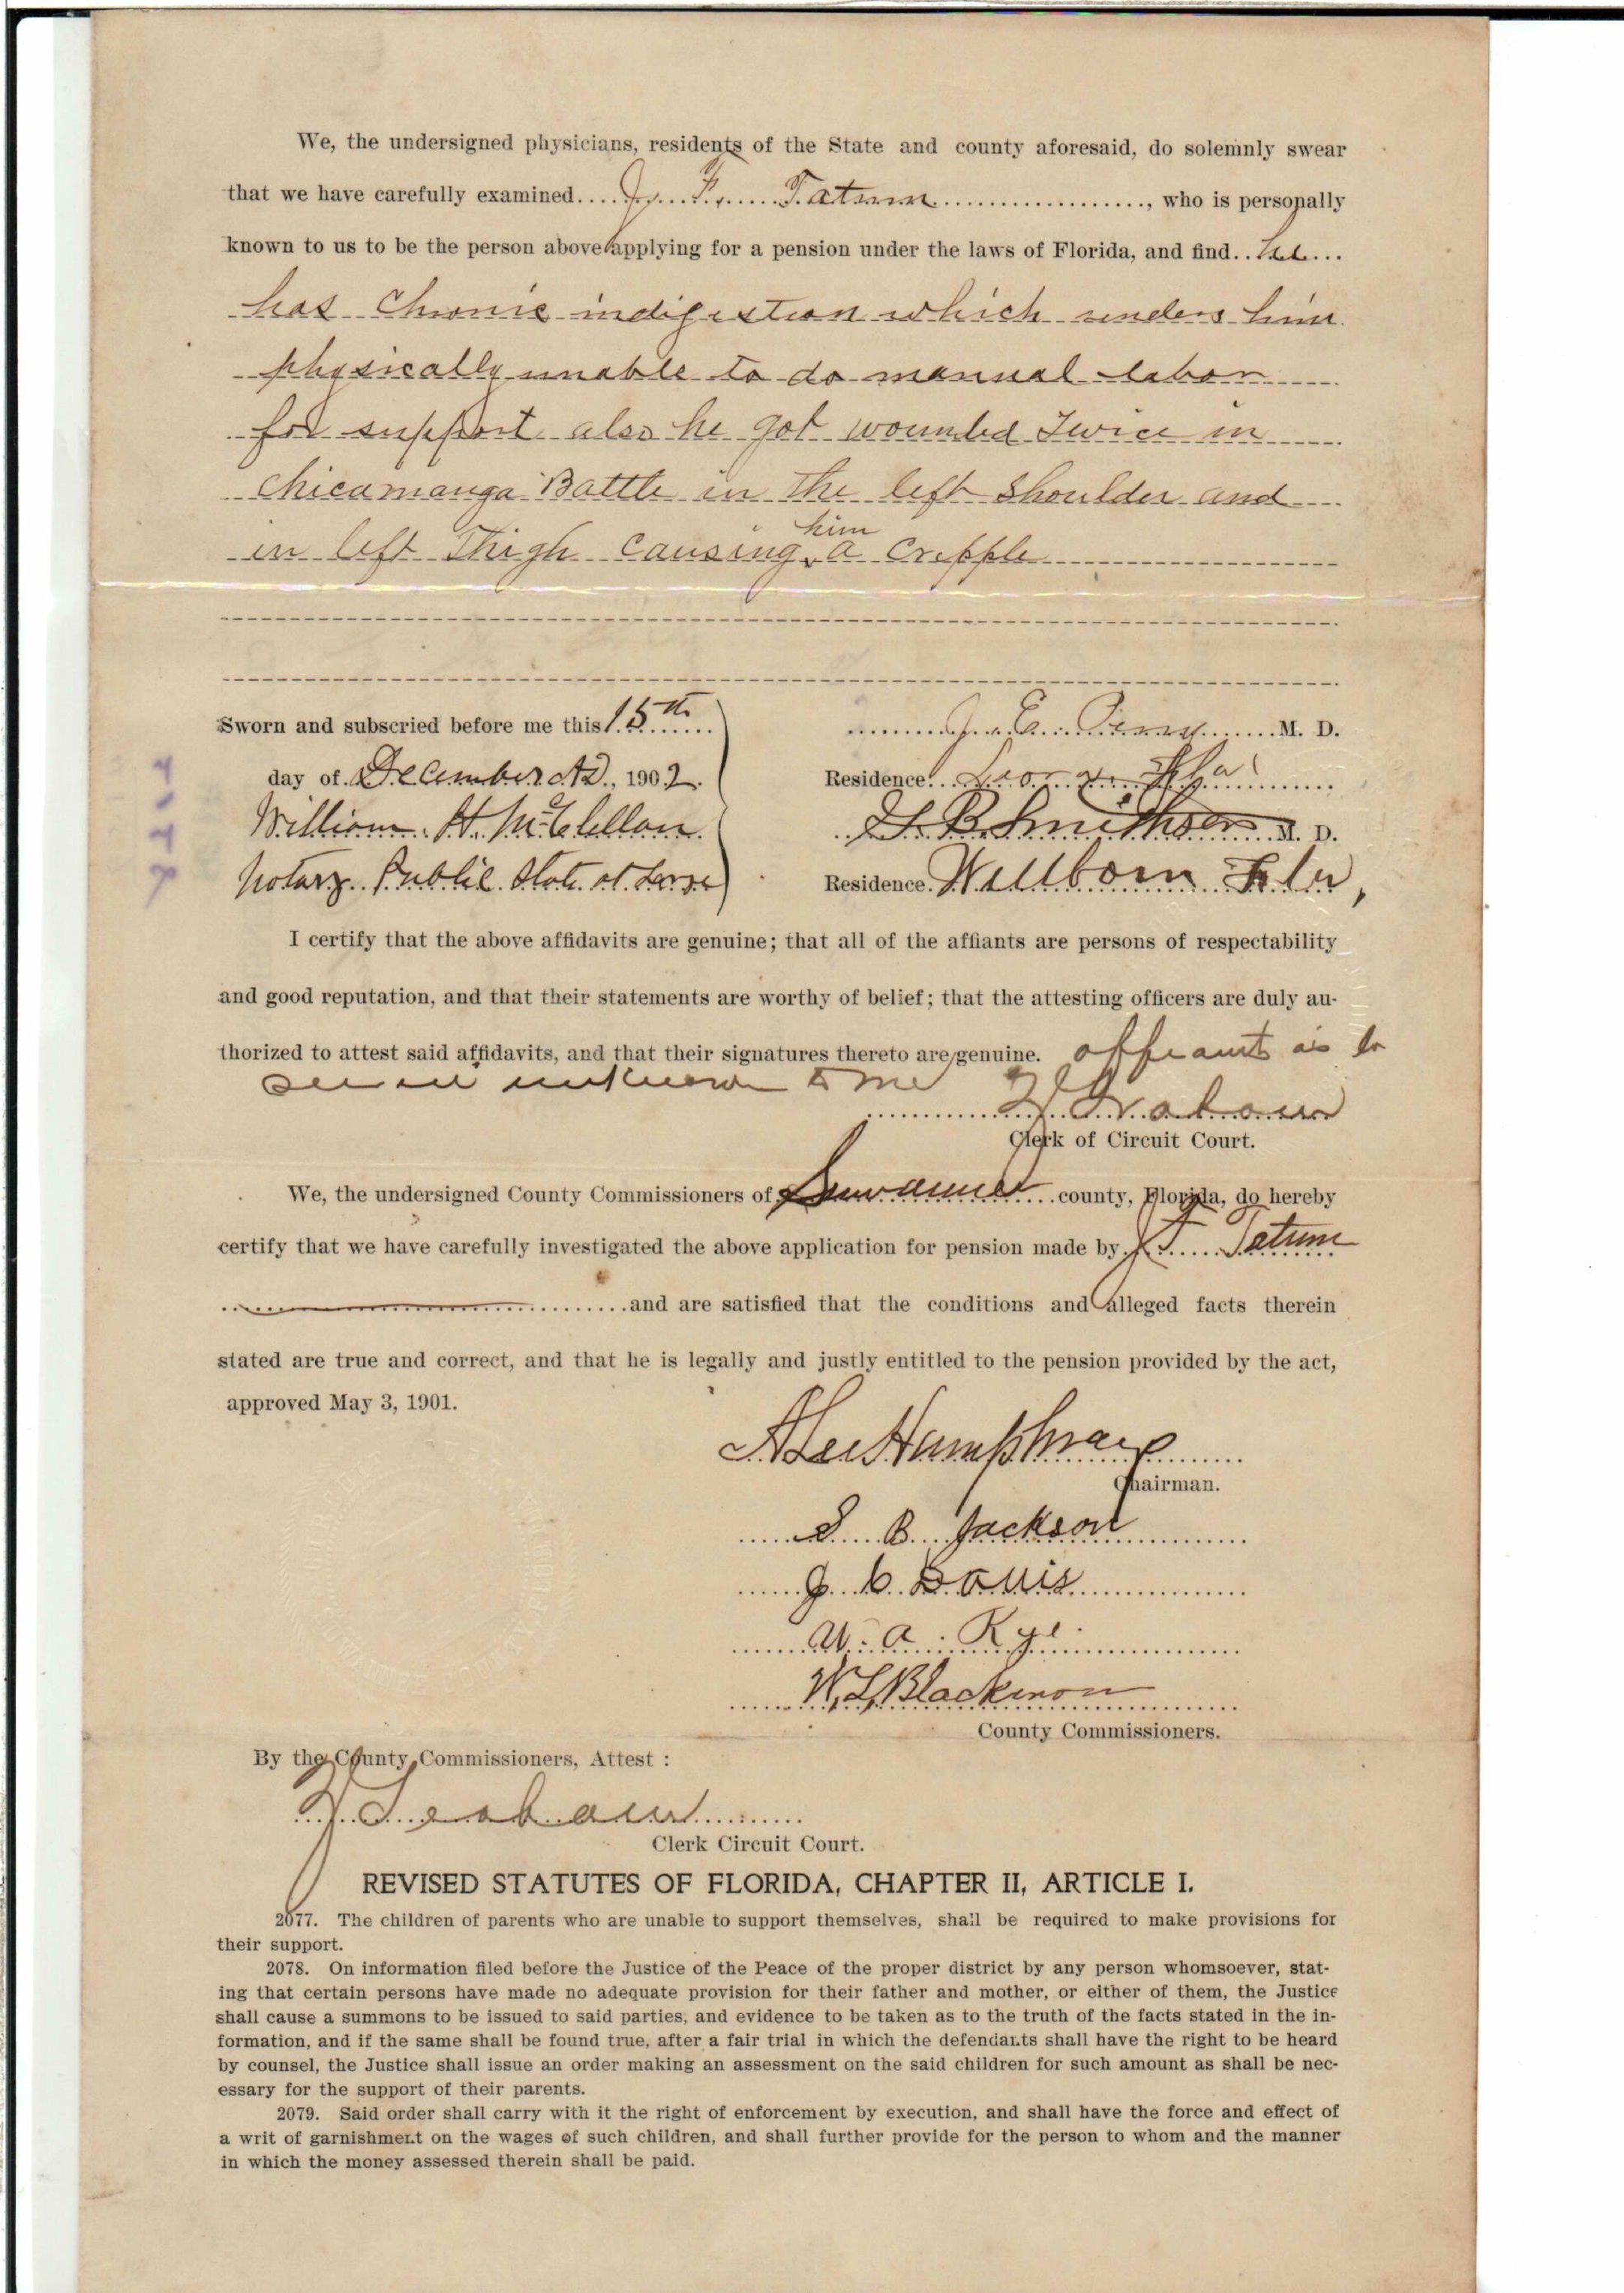 We, the undersigned physicians, residents of the State and county aforesaid, do solemnly swear
that we have carefully examined....J. F. Tatum.................., who is personally
known to us to be the person above applying for a pension under the laws of Florida, and find.. he...
has Chronic indigestion which renders him
physically unable to do manual labor
for support also he got wounded Twice in
Chicamanga Battle in The left Shoulder and
in left Thigh causing him a Cripple
Sworn and subscried before me this 15th
day of December AD., 1902.
William H. McClellan
Notary Public State at Large
J. E. Perry M. D.
Residence Fla
G B Smithson M. D.
Residence. Wellborn Fla,
I certify that the above affidavits are genuine; that all of the affiants are persons of respectability
and good reputation, and that their statements are worthy of belief; that the attesting officers are duly au-
thorized to attest said affidavits, and that their signatures thereto are genuine. affiants as to
unknown to me
Clerk of Circuit Court.
We, the undersigned County Commissioners of Suwannee county, Florida, do hereby
certify that we have carefully investigated the above application for pension made by J F Tatum
and are satisfied that the conditions and alleged facts therein
stated are true and correct, and that he is legally and justly entitled to the pension provided by the act,
approved May 3, 1901.
A Lee Humphrays
Chairman.
S B Jackson
J C Davis
W. A. Kye
W. L. Blackmon
County Commissioners.
By the County Commissioners, Attest :
Clerk Circuit Court.
REVISED STATUTES OF FLORIDA, CHAPTER II, ARTICLE I.
2077. The children of parents who are unable to support themselves, shall be required to make provisions for
their support.
2078. On information filed before the Justice of the Peace of the proper district by any person whomsoever, stat-
ing that certain persons have made no adequate provision for their father and mother, or either of them, the Justice
shall cause a summons to be issued to said parties, and evidence to be taken as to the truth of the facts stated in the in-
formation, and if the same shall be found true, after a fair trial in which the defendants shall have the right to be heard
by counsel, the Justice shall issue an order making an assessment on the said children for such amount as shall be nec-
essary for the support of their parents.
2079. Said order shall carry with it the right of enforcement by execution, and shall have the force and effect of
a writ of garnishment on the wages of such children, and shall further provide for the person to whom and the manner
in which the money assessed therein shall be paid.